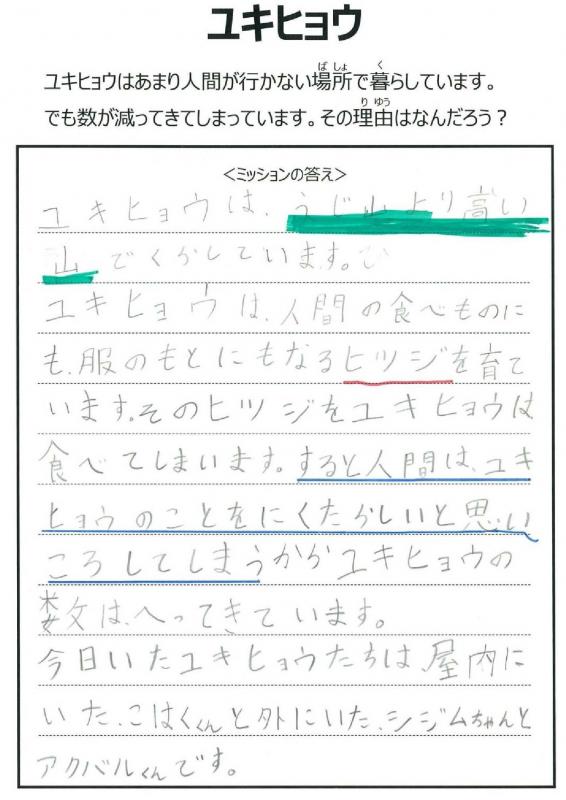 ユキヒョウ
ユキヒョウはあまり人間が行かない場所で暮らしています。
でも数が減ってきてしまっています。その理由はなんだろう？
<ミッションの答え>
ユキヒョウは、うじ山より高い
山でくらしています。ひ
ユキヒョウは、人間の食べものに
も、服のもとにもなるヒツジを育て
います。そのヒツジをユキヒョウは
食べてしまいます。すると人間は、ユキ
ヒョウのことをにくたかしいと思い
ころしてしまうからユキヒョウの
数は、へってきています。
今日いたユキヒョウたちは、屋内に
いた、こはくくんと外にいた、シジムちゃんと
アクバルくんです。